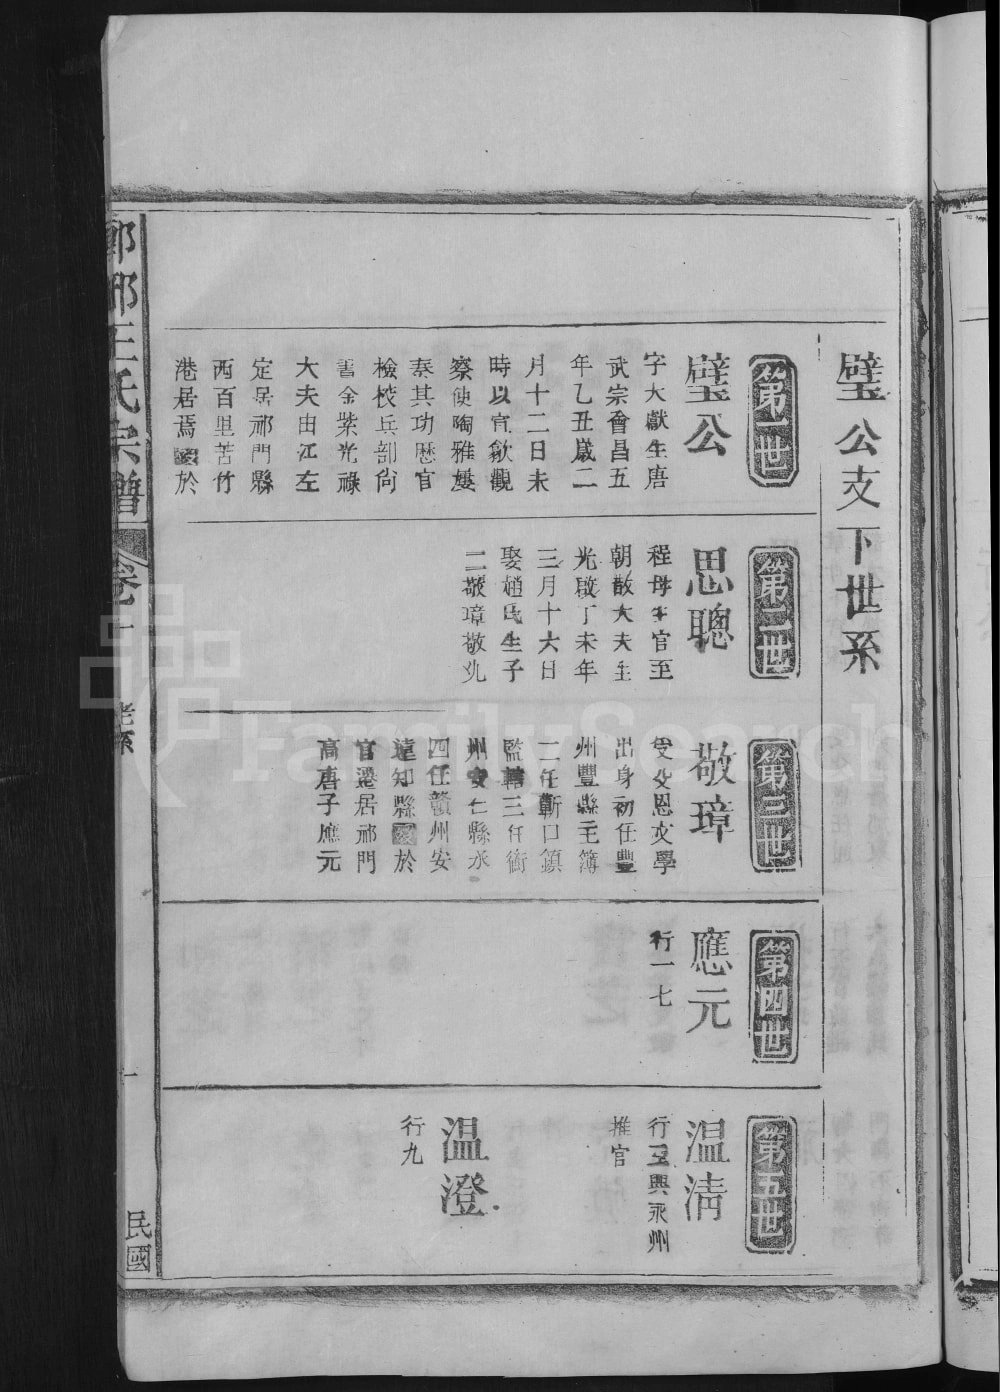 璧公支下世系
第一世
璧公
字大獻生唐
武宗會昌五
年乙丑歲二
月十二日未
時以宣歙觀
察使陶雅婁
奏其功歷官
檢校兵部尚
書金紫光祿
大夫由江左
定居祁門縣
西百里苦竹
港居焉於
第二世
思聰
程母官至
朝散大夫生
光啟丁未年
三月十六日
娶趙氏生子
二敬璋敬
第三世
敬璋
受父恩文學
出身初任豐
州豐縣主簿
二任蘄口鎮
監轄三任衡
州安仁縣丞
四任贛州安
遠知縣於
官遷居祁門
高唐子應元
第四世
應元
行一七
第五世
温清
行五興永州
推官
温澄
行九
瑯琊王氏宗譜
卷一
一
民國
FamilySearch